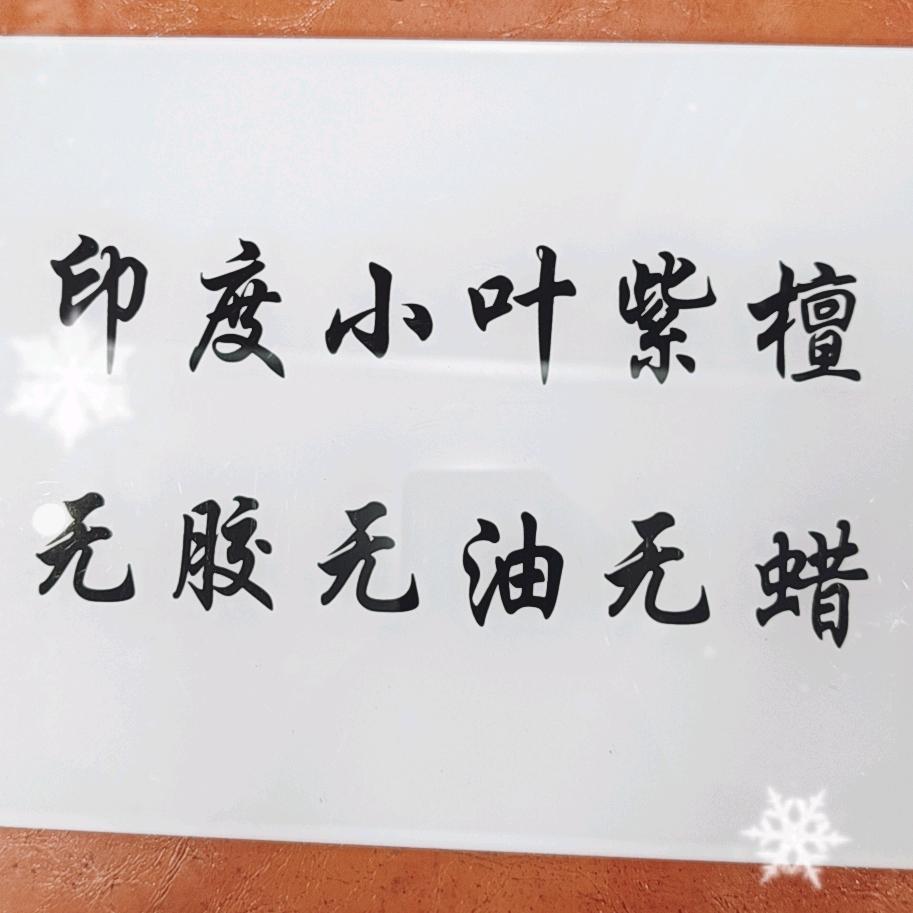 印度小叶紫檀
无胶无油无蜡